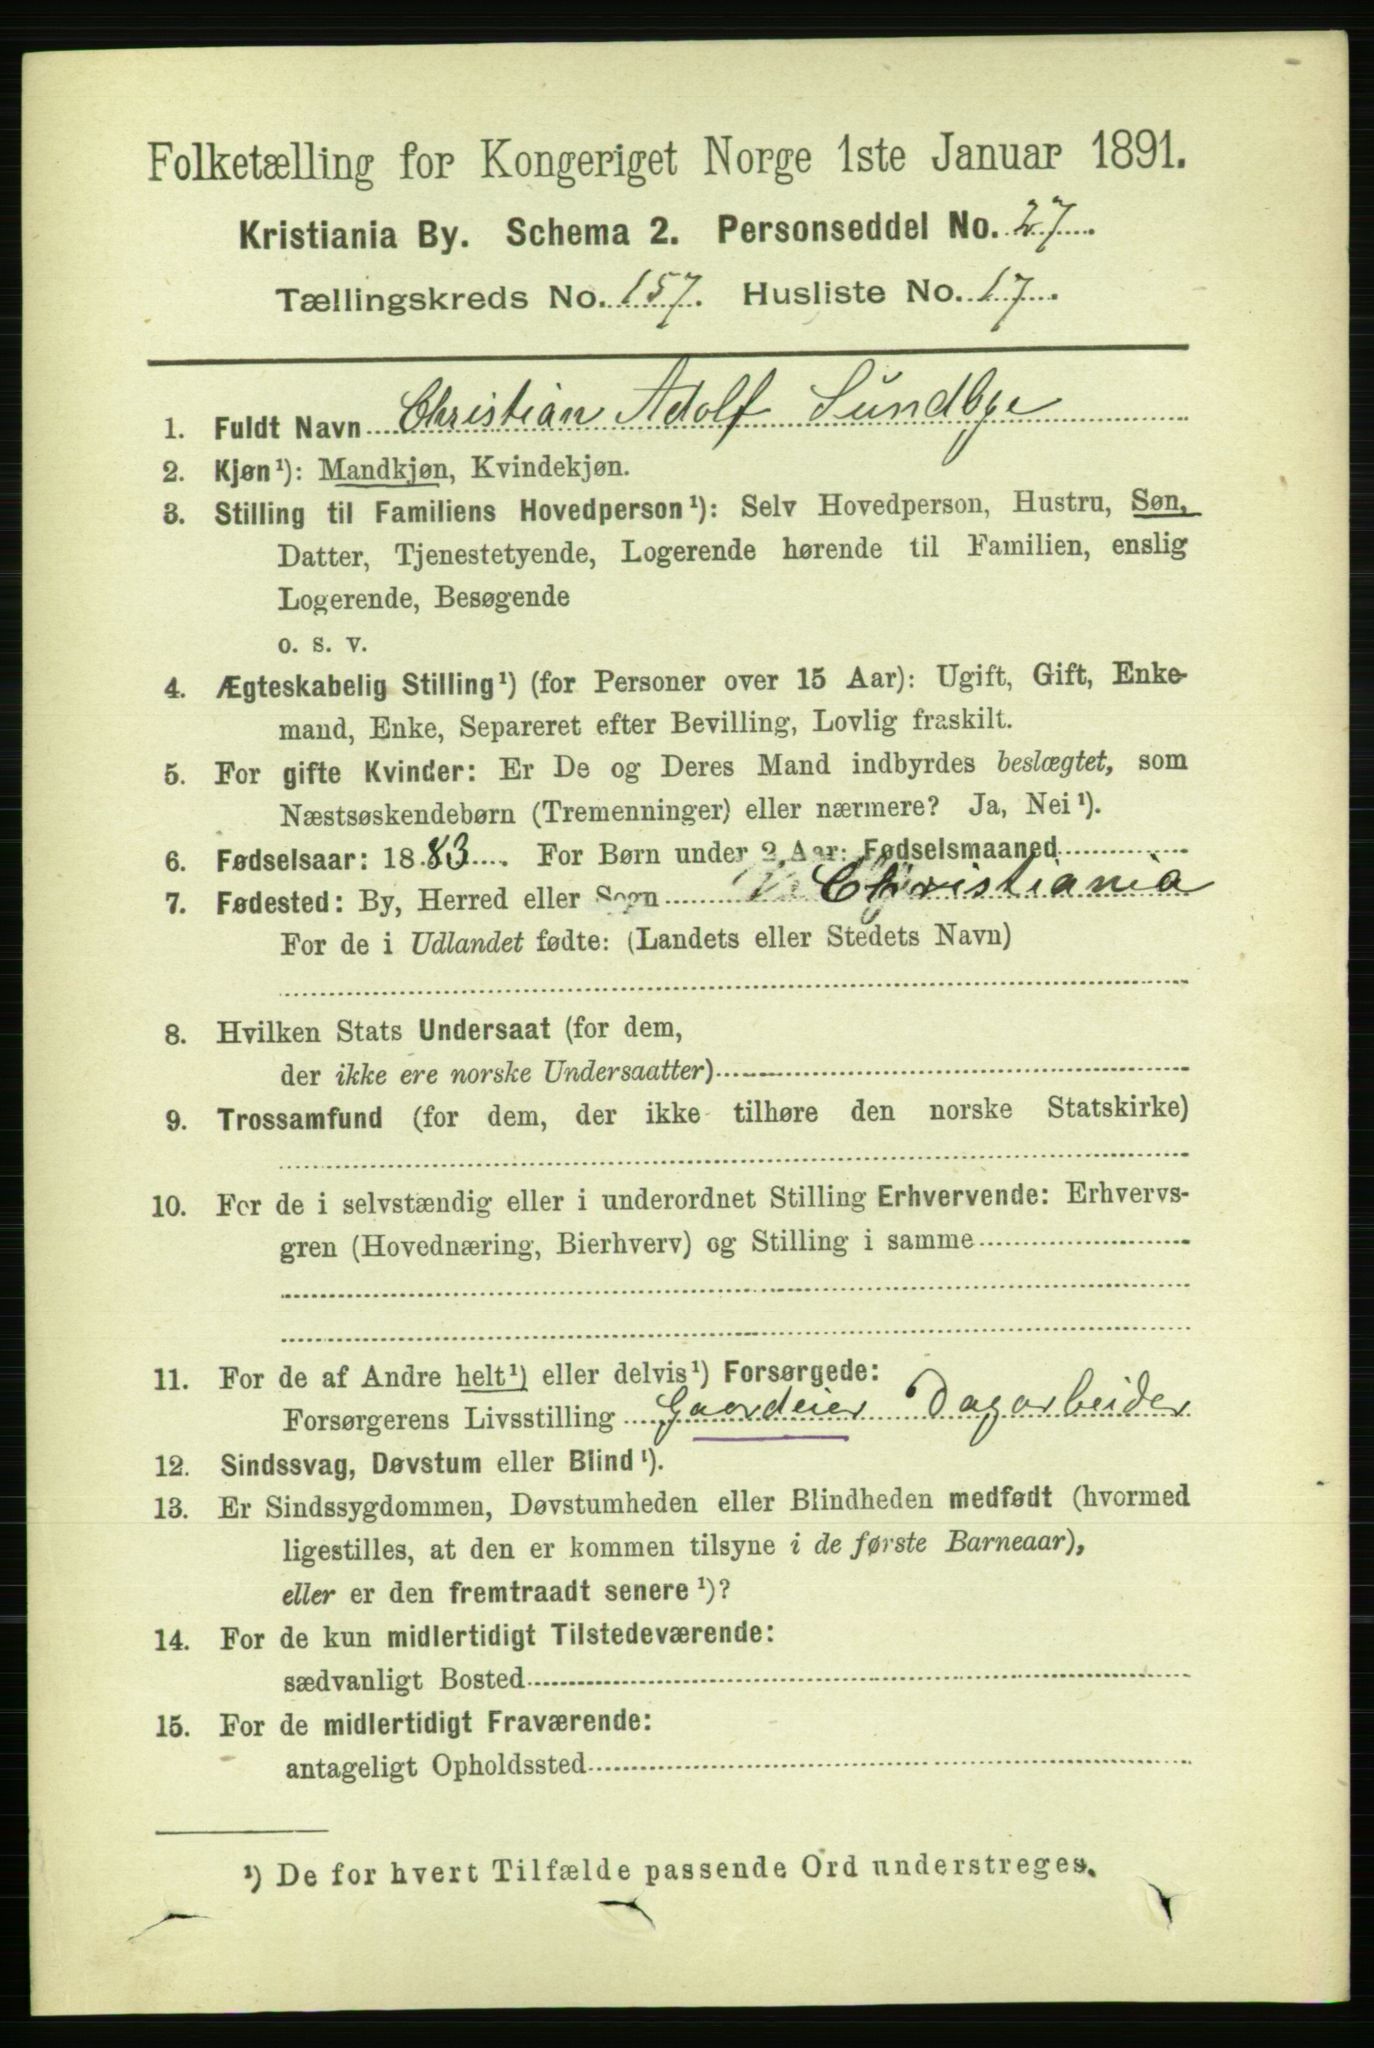 Folketælling for Kongeriget Norge 1ste Januar 1891.
Kristiania By. Schema 2. Personseddel No. 27
Tællingskreds No. 157. Husliste No. 17
1. Fuldt Navn Christian Adolf Sundbye
2. Kjøn¹): Mandkjøn, Kvindekjøn.
3. Stilling til Familiens Hovedperson¹): Selv Hovedperson, Hustru, Søn,
Datter, Tjenestetyende, Logerende hørende til Familien, enslig
Logerende, Besøgende
o. s. v.
4. Ægteskabelig Stilling¹) (for Personer over 15 Aar): Ugift, Gift, Enke-
mand, Enke, Separeret efter Bevilling, Lovlig fraskilt.
5. For gifte Kvinder: Er De og Deres Mand indbyrdes beslægtet, som
Næstsøskendebørn (Tremenninger) eller nærmere? Ja, Nei¹).
6. Fødselsaar: 1883. For Børn under 2 Aar: Fødselsmaaned
7. Fødested: By, Herred eller Sogn Christiania
For de i Udlandet fødte: (Landets eller Stedets Navn)
8. Hvilken Stats Undersaat (for dem,
der ikke ere norske Undersaatter)
9. Trossamfund (for dem, der ikke tilhøre den norske Statskirke)
10. For de i selvstændig eller i underordnet Stilling Erhvervende: Erhvervs-
gren (Hovednæring, Bierhverv) og Stilling i samme
11. For de af Andre helt¹) eller delvis¹) Forsørgede:
Forsørgerens Livsstilling Gaardeier Dagarbeider
12. Sindssvag, Døvstum eller Blind¹).
13. Er Sindssygdommen, Døvstumheden eller Blindheden medfødt (hvormed
ligestilles, at den er kommen tilsyne i de første Barneaar),
eller er den fremtraadt senere¹)?
14. For de kun midlertidigt Tilstedeværende:
sædvanligt Bosted
15. For de midlertidigt Fraværende:
antageligt Opholdssted
¹) De for hvert Tilfælde passende Ord understreges.